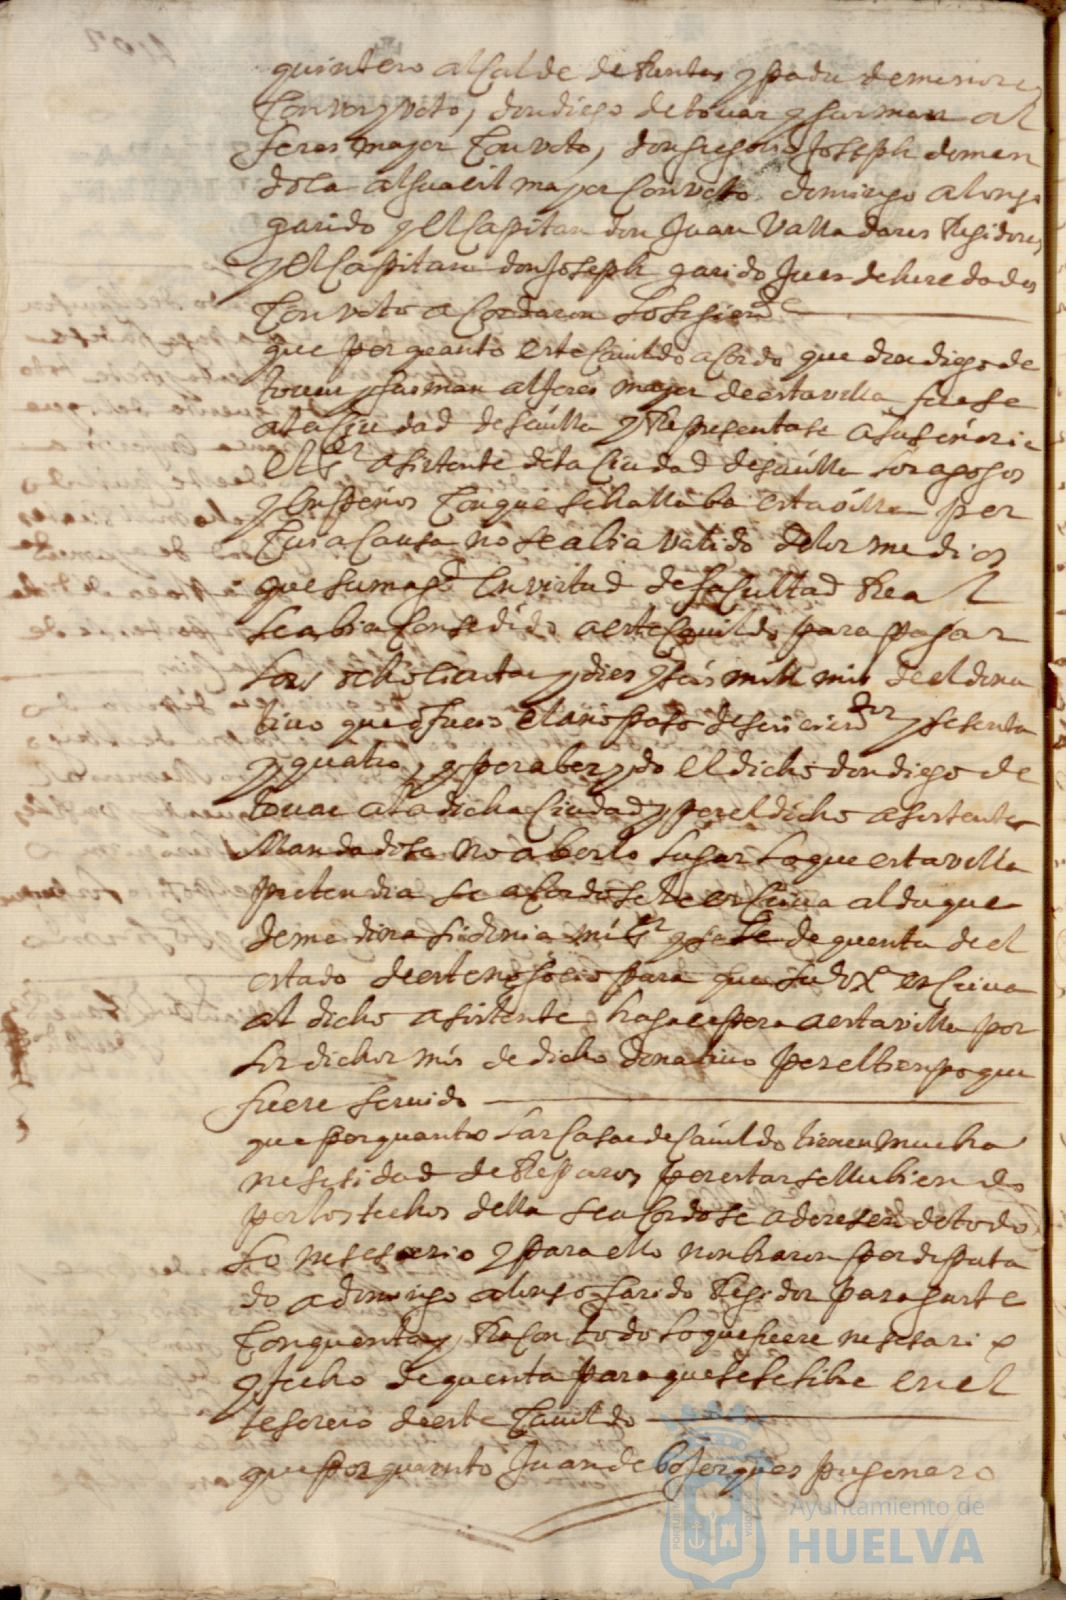 quintero alcalde de Rentas y padre de menores
con vos y voto, don diego de tovar y gusman al
feres mayor con voto, don gregorio Joseph de men
dosa alguacil mayor con voto domingo alonso
garido y el Capitan don Juan Valladares Regidores
y el Capitan don Joseph garido Jues de heredades
con voto acordaron lo sigiente
que por quanto este Cavildo acordo que don diego de
tovar y gusman alferes mayor de esta villa fuese
a la Ciudad de sevilla y Representase a su señoria
el sr asistente de la Ciudad de sevilla los agogos
y enpeños con que se hallaba esta villa por
cuia causa no se abia valido de los medios
que su magd en virtud de facultad Real
se abia consedido a este Cavildo para pagar
los ocho sientos y dies y seis mill mrs de el dona
tivo que ofresio el año pasado de seiscientos y sesenta
y quatro, y por aber ydo el dicho don diego de
tovar a la dicha Ciudad y por el dicho asistente
mandadose no aberlo lugar lo que esta villa
pretendia se acordo se le escriva al duque
de medina sidonia mi sr y se le de quenta de el
estado de este negosio para que su exa escriva
al dicho asistente haga espera a esta villa por
los dichos mrs de dicho donativo por el tienpo que
fuere servido
que por quanto las Casas de Cavildo tienen mucha
nesesidad de Reparos por estarse llubiendo
por los techos della se acordo se aderesen de todo
lo nesesario y para ello nonbraron por diputa
do a domingo alonso garido Regidor para gaste
con quenta y Rason todo lo que fuere nesesario
y fecho de quenta para que se le libre en el
tesorero de este Cavildo
que por quanto Juan de bojorques pregonero
Ayuntamiento de
HUELVA